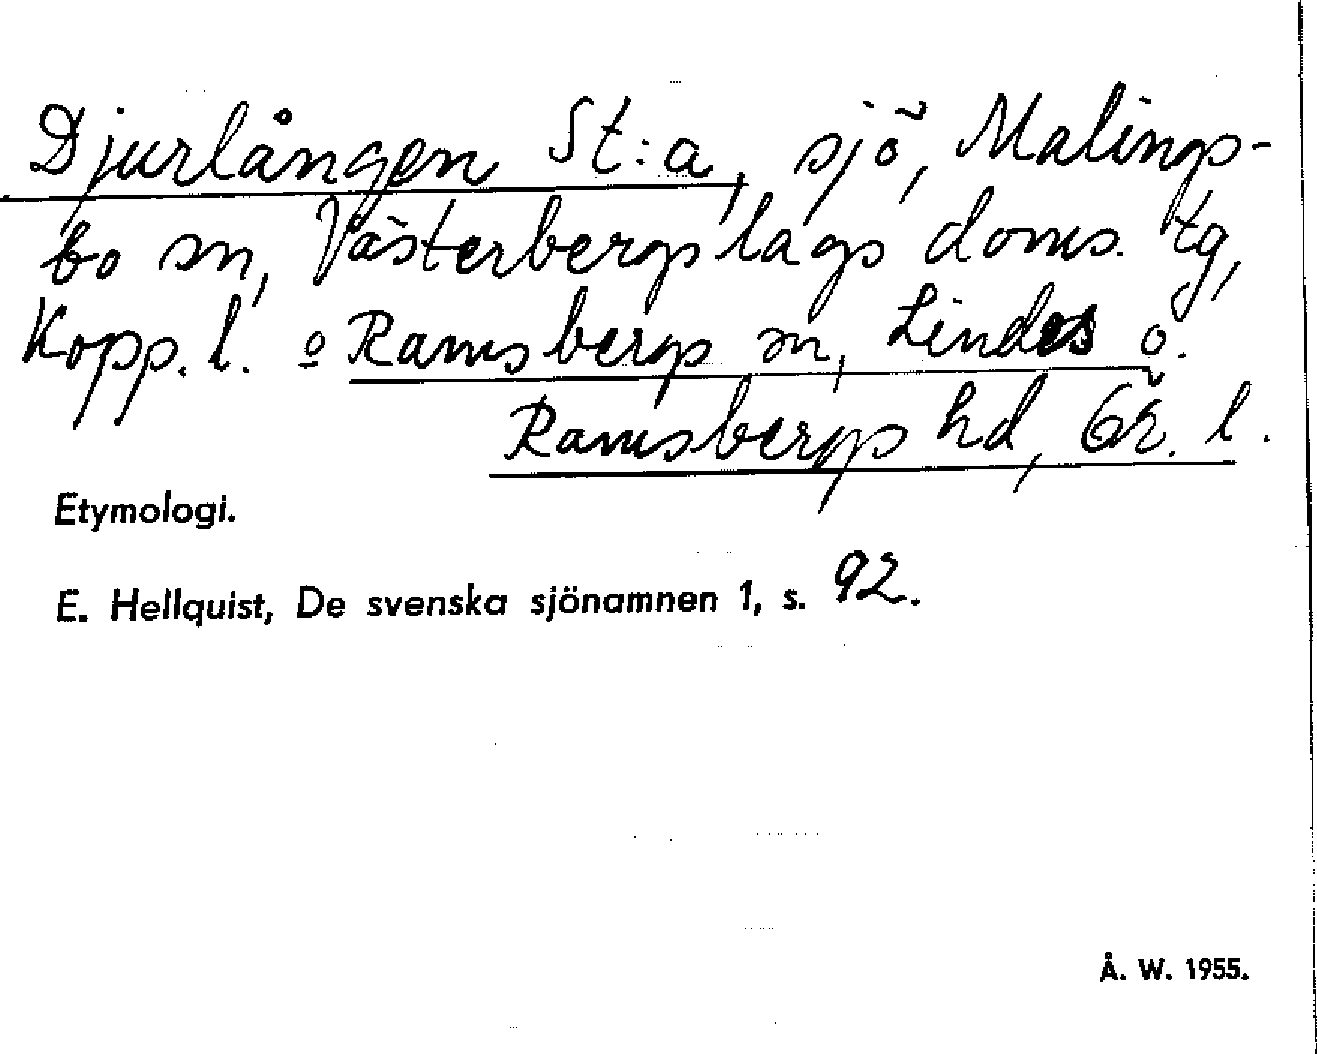 Djurlången St:a, sjö, Malings-
bo sn, Västerbergslags doms. tg,
Kopp. l. o Ramsbergs sn, Lindes o.
Ramsbergs hd, Ör. l.
Etymologi.
E. Hellquist, De svenska sjönamnen 1, s. 92.
Å. W. 1955.